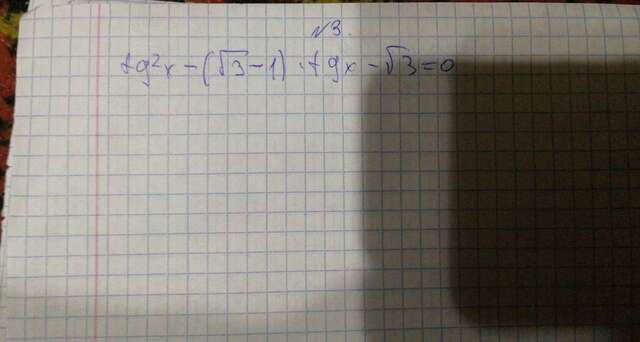 №3.
tg²x - (√3 - 1) · tgx - √3 = 0